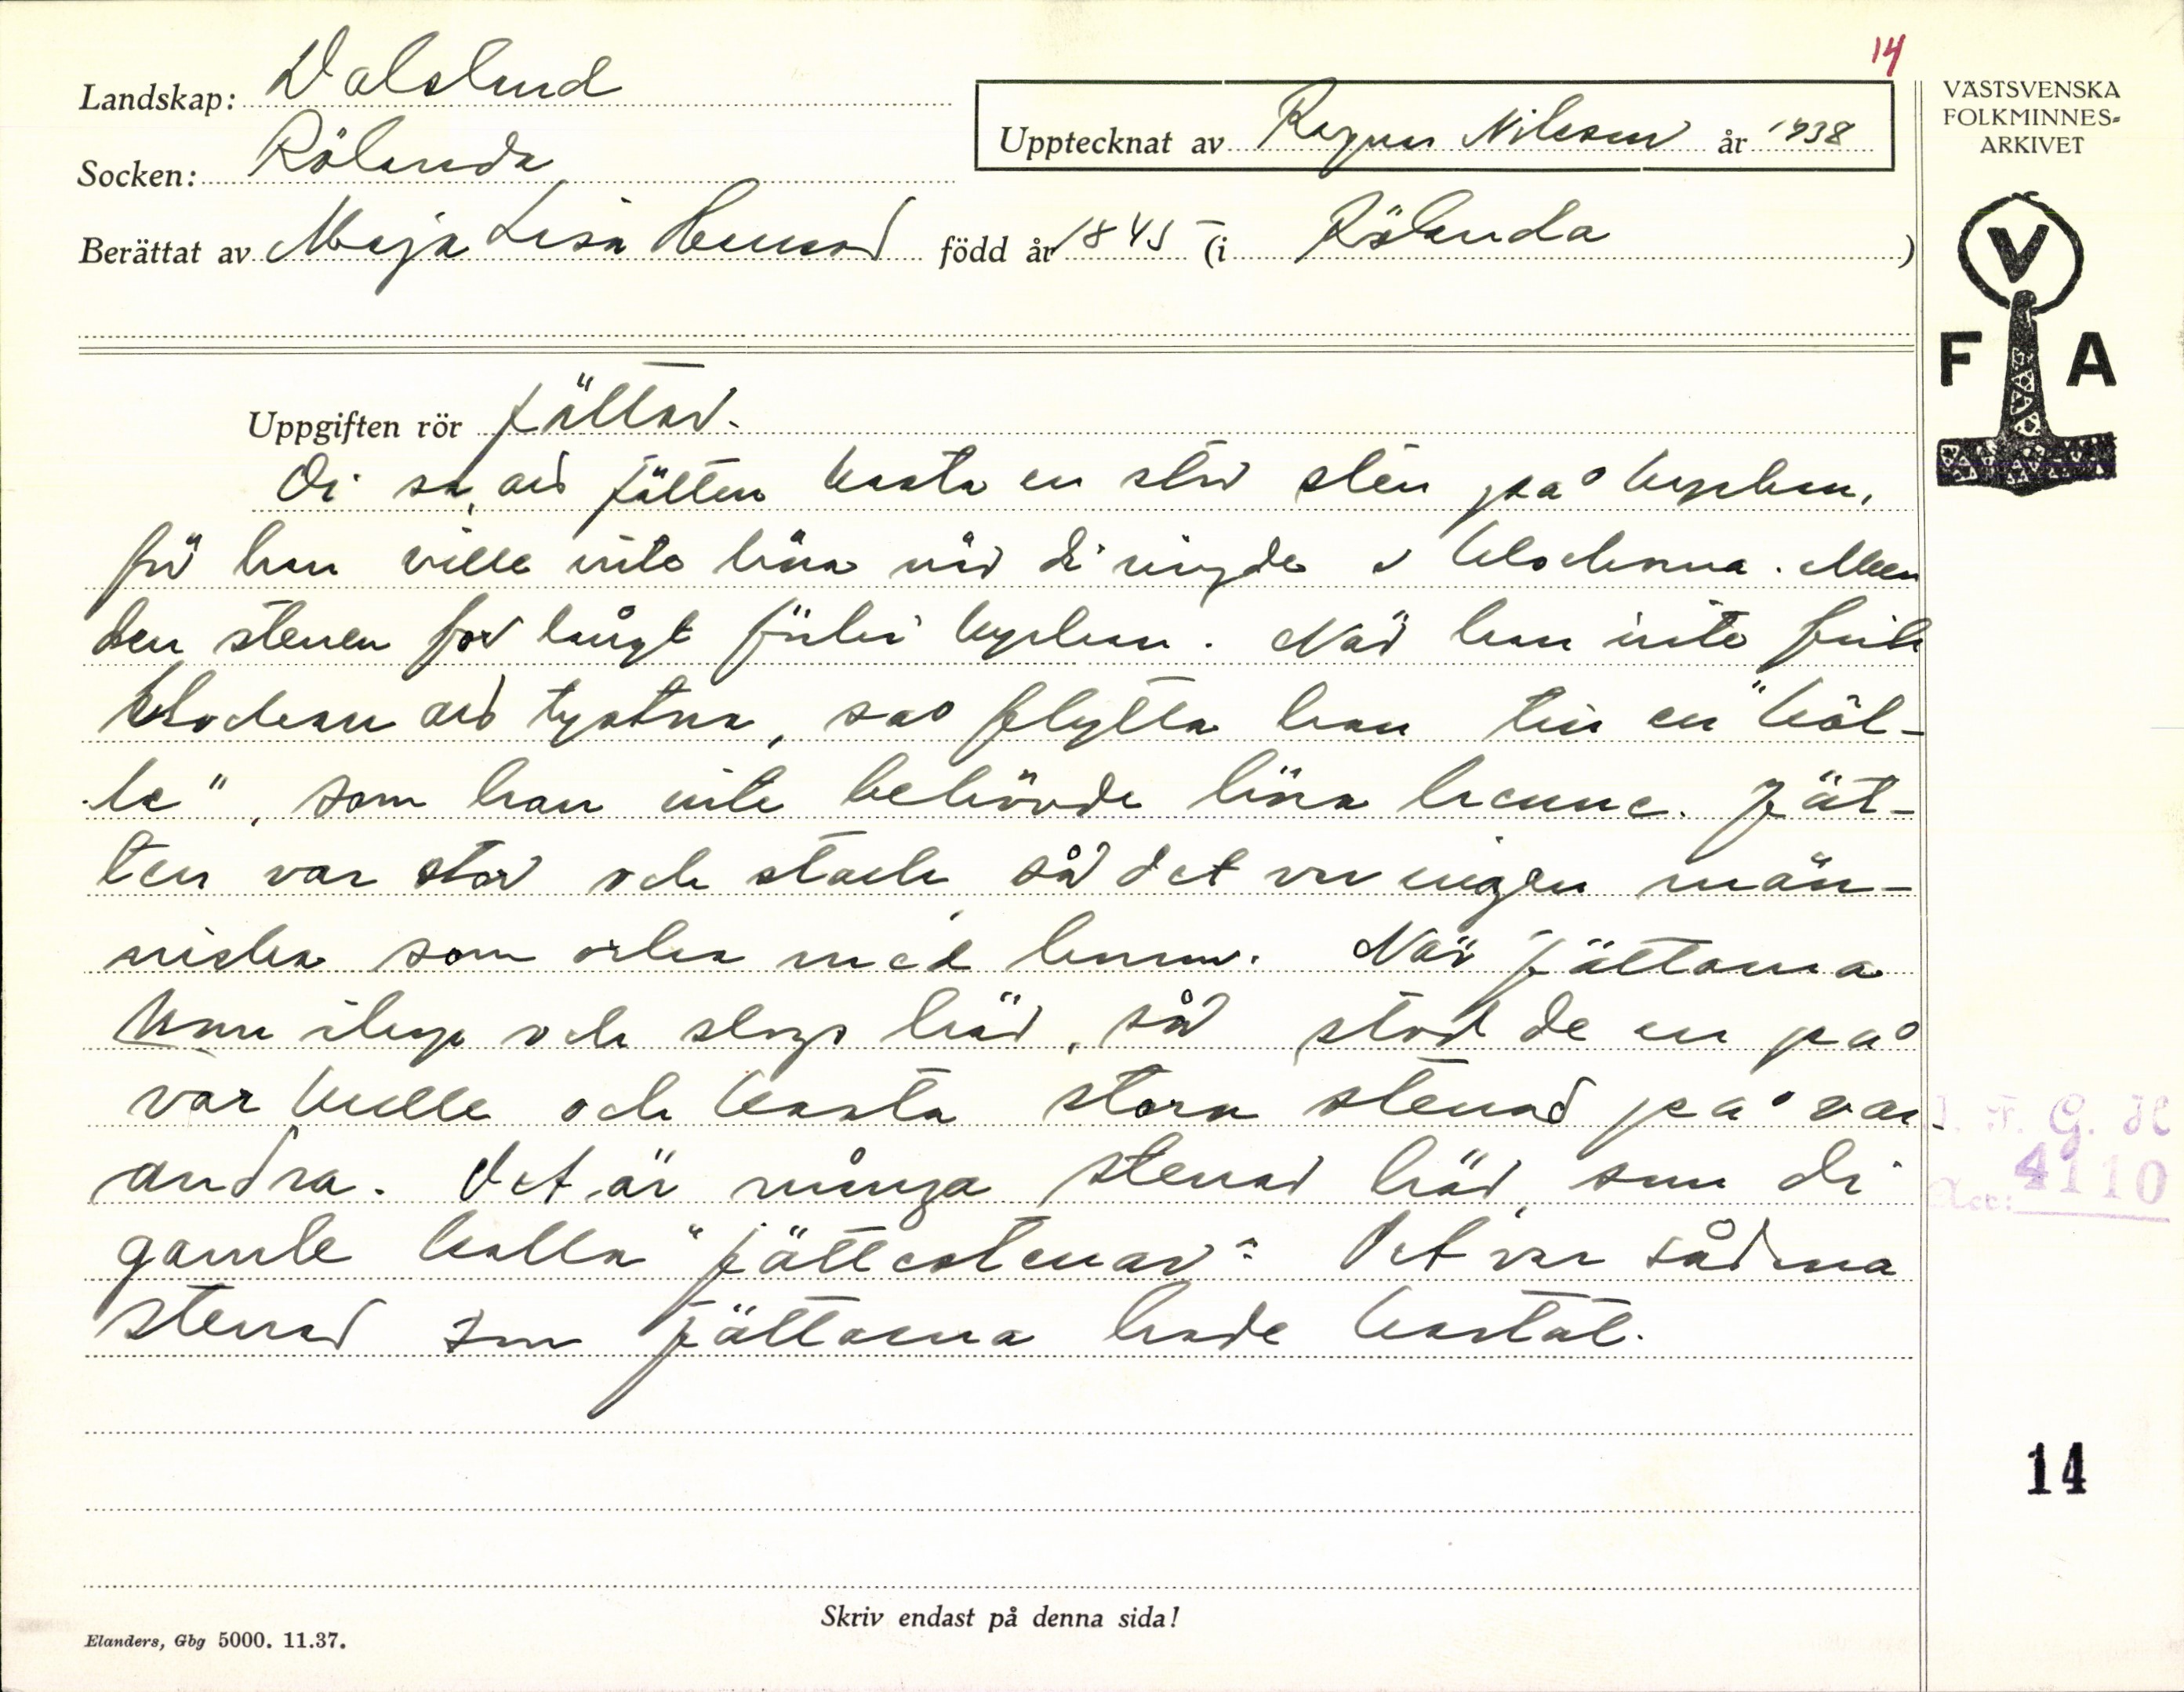 14
Landskap: Dalsland
Socken: Rölanda
Upptecknat av Ragnar Nilsson år 1938
Berättat av Maja Lisa född år 1845 (i Rölanda)
VÄSTSVENSKA
FOLKMINNES-
ARKIVET
V
F A
Uppgiften rör jättar.
Di sa, att jätten kasta en stor sten på kyrkan,
för han ville inte höra när di ringde i klockorna. Men
den stenen for långt förbi kyrkan. När han inte fick
klockan att tystna, så flytta han till en "häl-
la", som han inte behövde höra henne. Jät-
ten var stor och stark så det var ingen män-
niska som orka med honom. När jättarna
kom ihop och slogs här, så stod de en på
var kulle och kasta stora stenar på var
andra. Det är många stenar här, som di
gamle kalla "jättestenar". Det var sådana
stenar som jättarna hade kastat.
I. F. G. H.
Acc: 4110
14
Skriv endast på denna sida!
Elanders, Gbg 5000. 11.37.